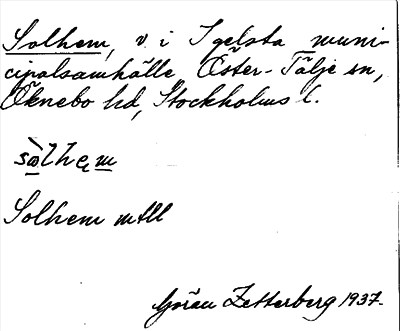 Solhem, v. i Igelsta muni-
cipalsamhälle, Öster-Tälje sn,
Öknebo hd, Stockholms l.
Solhem mtll
Göran Zetterberg 1937.